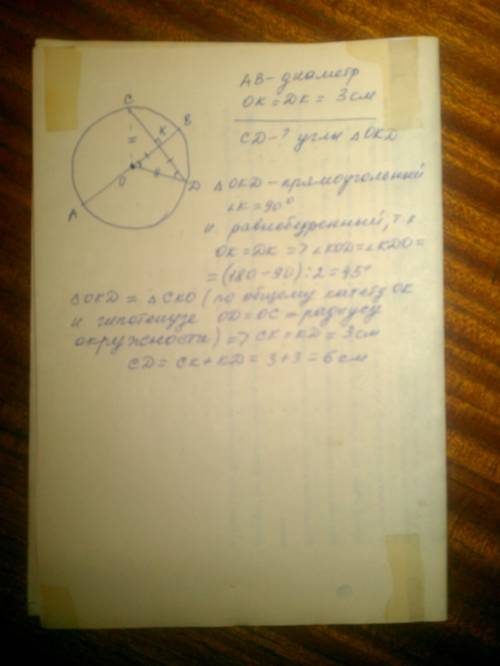 C
K
B
O
D
A
AB - диаметр
OK = DK = 3 см
CD - ? углы △OKD
△OKD - прямоугольный
∠K = 90°
и равнобедренный, т к
OK = DK => ∠KOD = ∠KDO =
= (180 - 90) : 2 = 45°
△OKD = △CKO (по общему катету OK
и гипотенузе OD = OC = радиусу
окружности) => CK = KD = 3 см
CD = CK + KD = 3 + 3 = 6 см